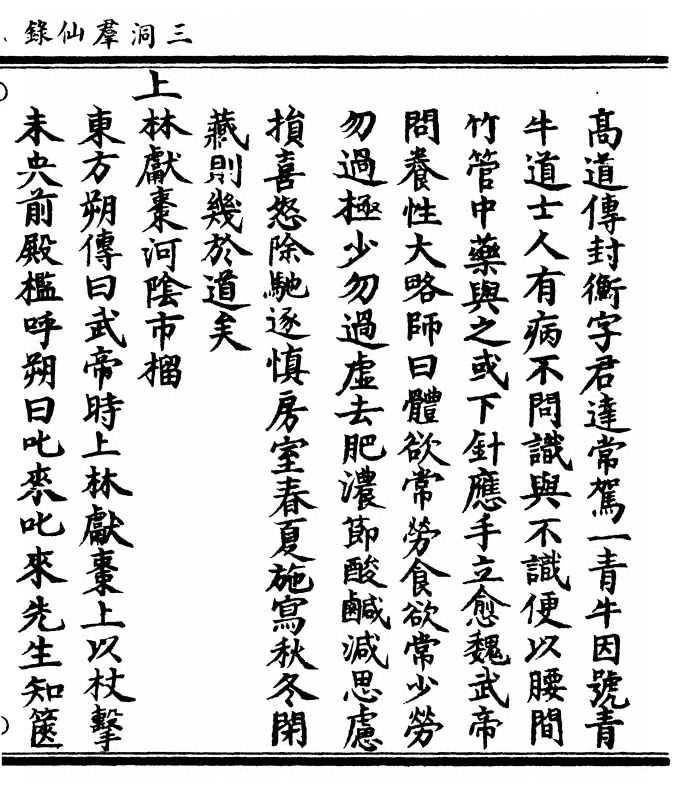 三洞羣仙錄
高道傳封衡字君達常駕一青牛因號青
牛道士人有病不問識與不識便以腰間
竹管中藥與之或下針應手立愈魏武帝
問養性大略師曰體欲常勞食欲常少勞
勿過極少勿過虛去肥濃節酸鹹減思慮
損喜怒除馳逐慎房室春夏施寫秋冬閉
藏則幾於道矣
上林獻棗河陰市榴
東方朔傳曰武帝時上林獻棗上以杖擊
未央前殿檻呼朔曰叱來叱來先生知篋